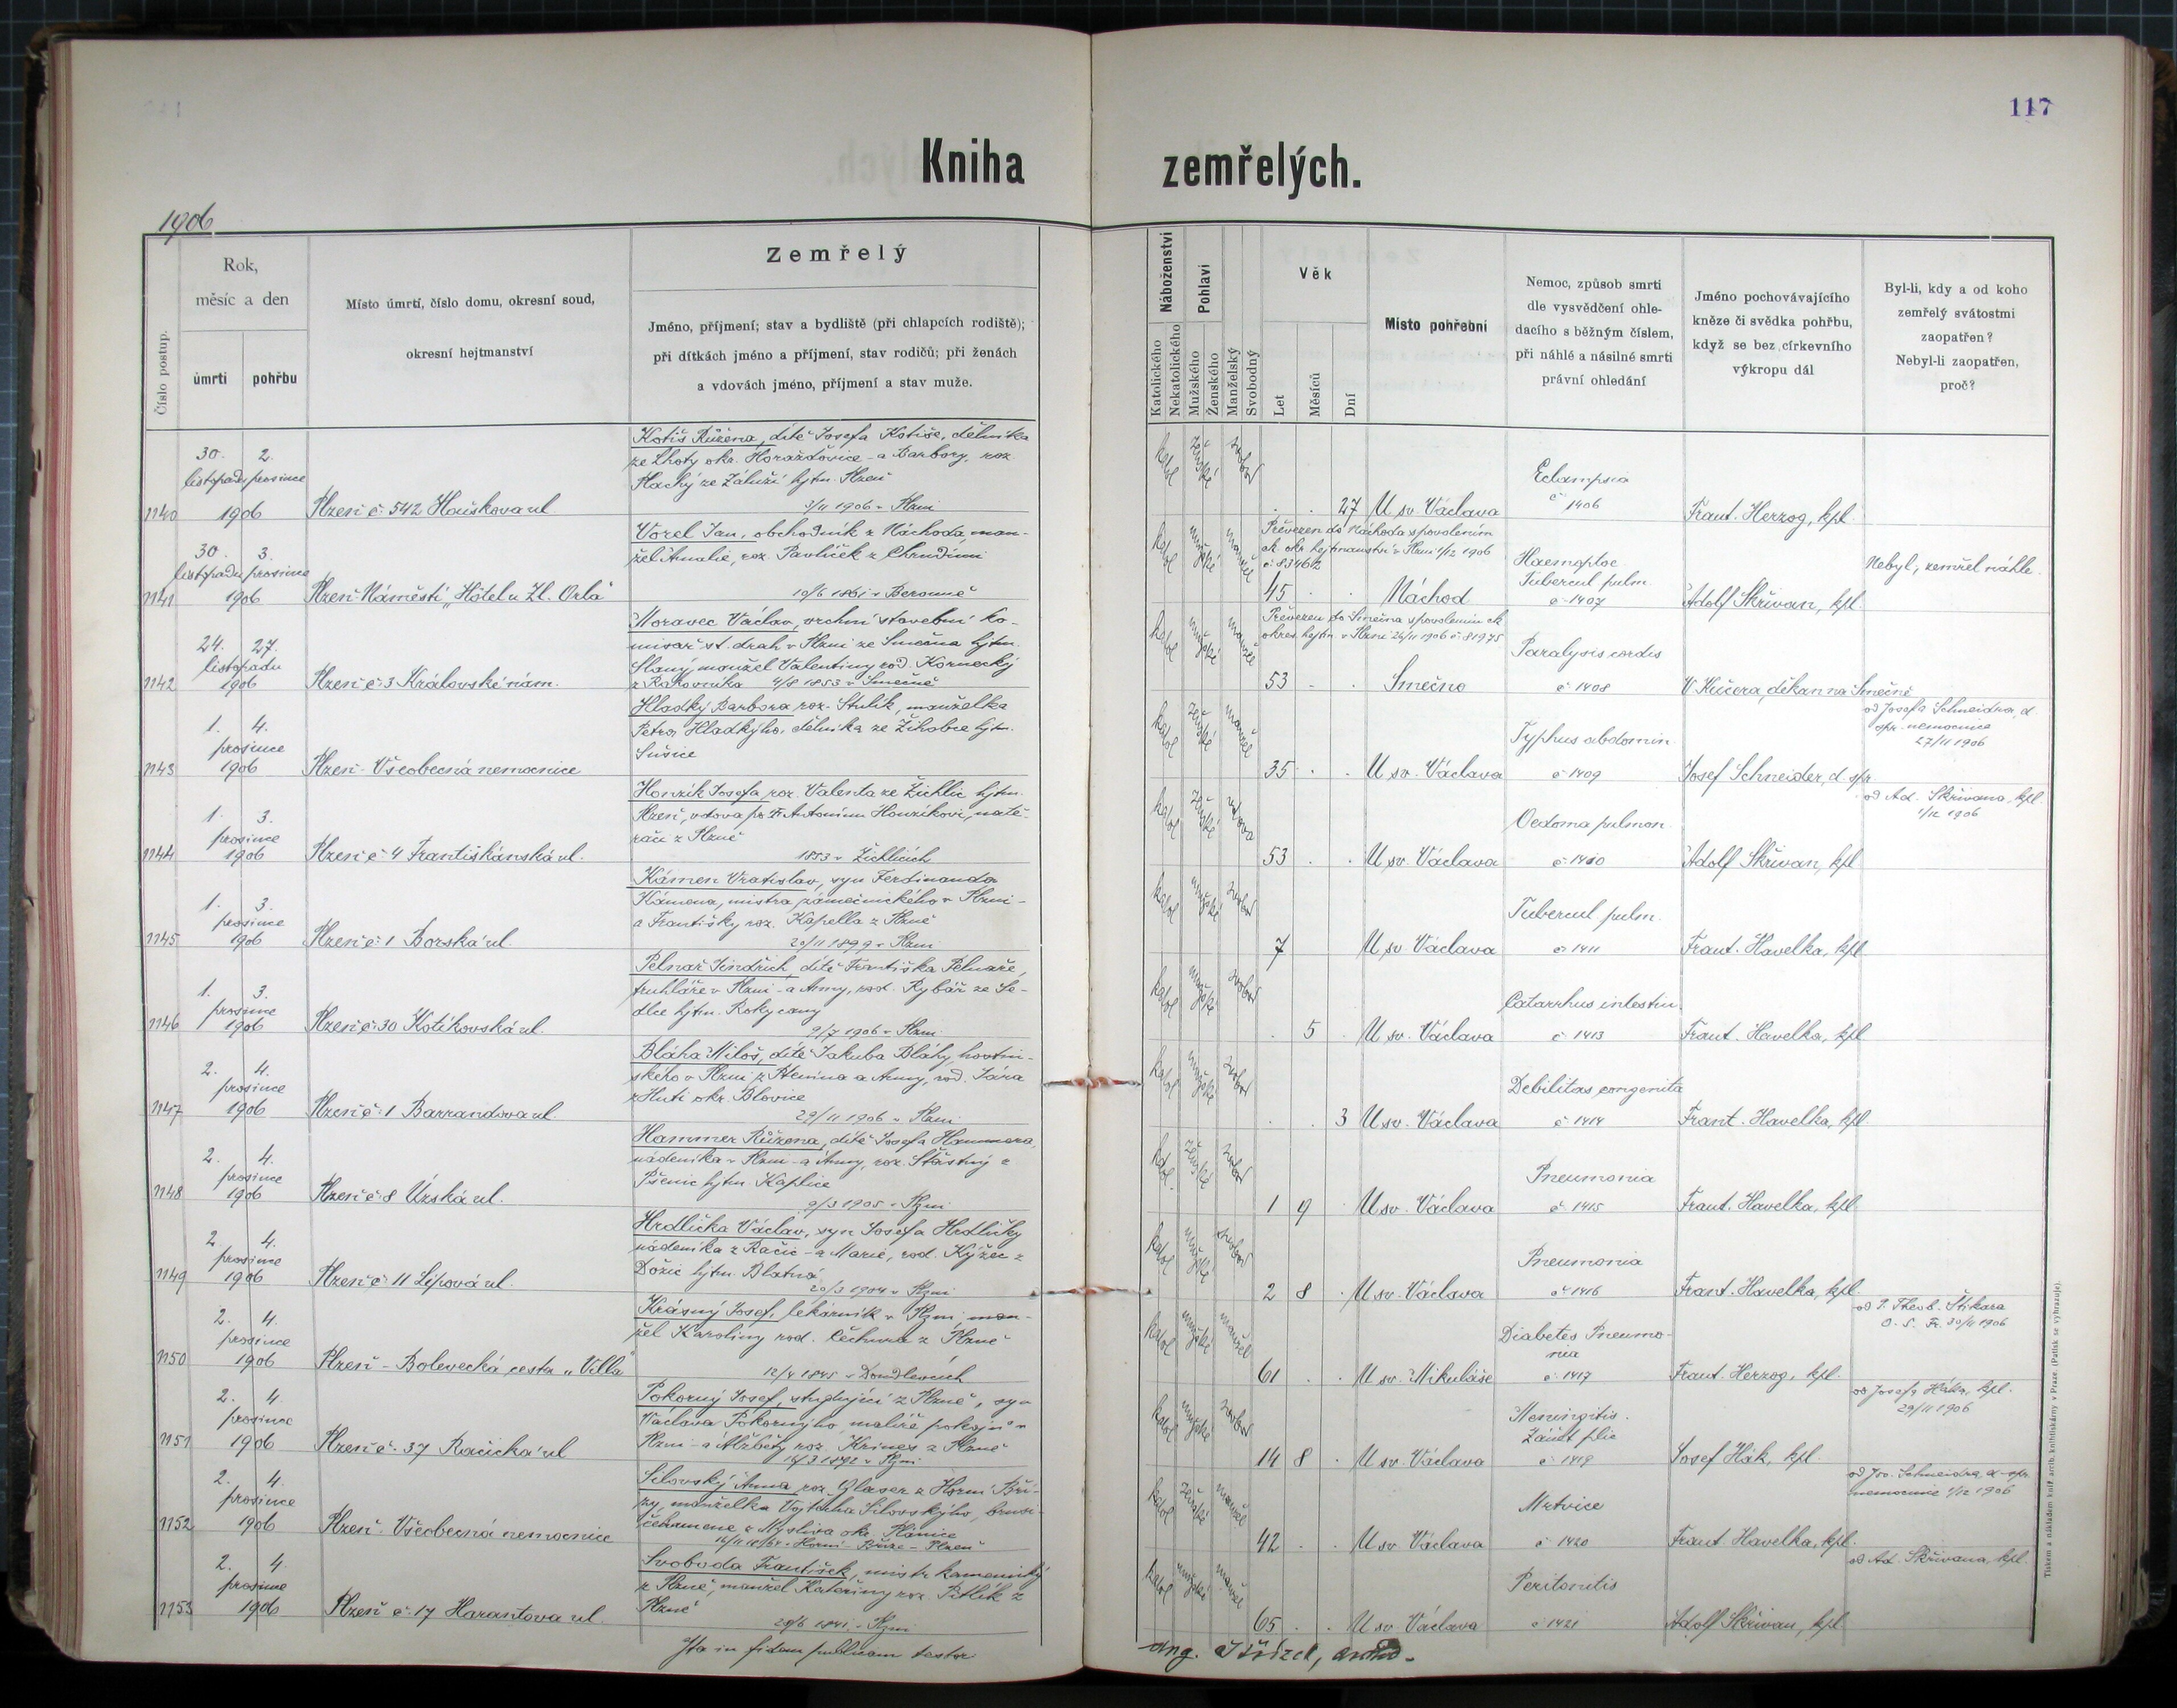 117
Kniha zemřelých.
1906
Číslo postup.
Rok,
měsíc a den
úmrtí
pohřbu
Místo úmrtí, číslo domu, okresní soud,
okresní hejtmanství
Zemřelý
Jméno, příjmení; stav a bydliště (při chlapcích rodiště);
při dítkách jméno a příjmení, stav rodičů; při ženách
a vdovách jméno, příjmení a stav muže.
Náboženství
Katolického
Nekatolického
Pohlaví
Mužského
Ženského
Manželský
Svobodný
Věk
Let
Měsíců
Dní
Místo pohřební
Nemoc, způsob smrti
dle vysvědčení ohle-
dacího s běžným číslem,
při náhlé a násilné smrti
právní ohledání
Jméno pochovávajícího
kněze či svědka pohřbu,
když se bez církevního
výkropu dál
Byl-li, kdy a od koho
zemřelý svátostmi
zaopatřen?
Nebyl-li zaopatřen,
proč?
1140
30. 2.
listopadu prosince
1906
Plzeň č. 542 Houškova ul.
Kotiš Růžena, dítě Josefa Kotiše, dělníka
ze Lhoty okr. Horažďovice - a Barbory, roz.
Plachý ze Záluží hjtm. Plzeň
3/11 1906 v Plzni
katol ženské svobod
27 U sv. Václava
Eclampsia
č 1406
Frant. Herzog, kpl.
1141
30. 3.
listopadu prosince
1906
Plzeň Náměstí „Hôtel u Zl. Orla“
Vorel Jan, obchodník z Náchoda, man-
žel Amalie, roz. Pavlíček z Chrudimi
10/6 1861 v Berouně
katol mužské manžel
Převezen do Náchoda s povolením
ck. okr. hejtmanství v Plzni 1/12 1906
č. 83462
45 Náchod
Haemoptoe
Tubercul. pulm.
č 1407
Adolf Skřivan, kpl.
Nebyl, zemřel náhle.
1142
24. 27.
listopadu
1906
Plzeň č. 3 Královské nám.
Moravec Václav, vrchní stavební ko-
misař st. drah v Plzni ze Smečna hjtm.
Slaný, manžel Valentiny rod. Kornecký
z Rakovníka 4/8 1853 v Smečně
katol mužské manžel
Převezen do Smečna s povolením ck.
okres. hejtm. v Plzni 26/11 1906 č. 81975
53 Smečno
Paralysis cordis
č 1408
V. Kučera, děkan na Smečně
1143
1. 4.
prosince
1906
Plzeň - Všeobecná nemocnice
Hladký Barbora roz. Stulík, manželka
Petra Hladkýho, dělníka ze Žihobce hjtm.
Sušice
katol ženské manžel
35 U sv. Václava
Typhus abdomin.
č 1409
Josef Schneider, d. spr.
od Josefa Schneidra, d.
spr. nemocnice
27/11 1906
1144
1. 3.
prosince
1906
Plzeň č. 4 Františkánská ul.
Honzík Josefa roz. Valenta ze Žichlic hjtm.
Plzeň, vdova po Antonínu Honzíkovi, natě-
rači z Plzně
1853 v Žichlicích
katol ženské vdova
53 U sv. Václava
Oedema pulmon.
č 1410
Adolf Skřivan, kpl.
od Ad. Skřivana, kpl.
1/12 1906
1145
1. 3.
prosince
1906
Plzeň č. 1 Borská ul.
Kámen Vratislav, syn Ferdinanda
Kámena, mistra zámečnického v Plzni -
a Františky, roz. Kapella z Plzně
20/11 1899 v Plzni
katol mužské svobod
7 U sv. Václava
Tubercul. pulm.
č 1411
Frant. Havelka, kpl.
1146
1. 3.
prosince
1906
Plzeň č. 30 Kotíkovská ul.
Pelnař Jindřich, dítě Františka Pelnaře,
truhláře v Plzni - a Anny, rod. Rybář ze Se-
dlce hjtm. Rokycany
9/7 1906 v Plzni
katol mužské svobod
5 U sv. Václava
Catarrhus intestin.
č 1413
Frant. Havelka, kpl.
1147
2. 4.
prosince
1906
Plzeň č. 1 Barrandova ul.
Bláha Miloš, dítě Jakuba Bláhy, hostin-
ského v Plzni z Ptenína a Anny, rod. Jára
z Huti okr. Blovice
29/11 1906 v Plzni
katol mužské svobod
3 U sv. Václava
Debilitas congenita
č 1414
Frant. Havelka, kpl.
1148
2. 4.
prosince
1906
Plzeň č. 8 Úzská ul.
Hammer Růžena, dítě Josefa Hammera,
nádeníka v Plzni - a Anny, roz. Šťastný z
Pšenic hjtm. Kaplice
9/3 1905 v Plzni
katol ženské svobod
1 9 U sv. Václava
Pneumonia
č. 1415
Frant. Havelka, kpl.
1149
2. 4.
prosince
1906
Plzeň č. 11 Lipová ul.
Hrdlička Václav, syn Josefa Hrdličky
nádeníka z Račic - a Marie, rod. Kýžec z
Dožic hjtm. Blatná
20/3 1904 v Plzni
katol mužské svobod
2 8 U sv. Václava
Pneumonia
č 1416
Frant. Havelka, kpl.
1150
2. 4.
prosince
1906
Plzeň - Bolevecká cesta „Villa“
Krásný Josef, lékárník v Plzni, man-
žel Karoliny rod. Čechura z Plzně
12/4 1845 v Doudlevcích
katol mužské manžel
61 U sv. Mikuláše
Diabetes Pneumo-
nia
č. 1417
Frant. Herzog, kpl.
od P. Theob. Štikara
O. S. Fr. 30/11 1906
1151
2. 4.
prosince
1906
Plzeň č. 37 Račická ul
Pokorný Josef, studující z Plzně, syn
Václava Pokorného, malíře pokojů v
Plzni - a Alžběty roz. Krines z Plzně
16/3 1892 v Plzni
katol mužské svobod
14 8 U sv. Václava
Meningitis.
Zánět plic
č 1419
Josef Hák, kpl.
od Josefa Háka, kpl.
29/11 1906
1152
2. 4.
prosince
1906
Plzeň. Všeobecná nemocnice
Silovský Anna roz. Glaser z Horní Bří-
zy, manželka Vojtěcha Silovskýho, brusi-
če kamene z Myslíva okr. Plánice
katol ženské manžel
42 U sv. Václava
Mrtvice
č 1420
Frant. Havelka, kpl.
od Jos. Schneidra, d. spr.
nemocnice 1/12 1906
1153
2. 4.
prosince
1906
Plzeň č. 17 Harantova ul.
Svoboda František, mistr kamenický
z Plzně, manžel Kateřiny roz. Pitlík z
Plzně
28/6 1841 v Plzni
katol mužské manžel
65 U sv. Václava
Peritonitis
č 1421
Adolf Skřivan, kpl.
od Ad. Skřivana, kpl.
Ita in fidem publicam testor:
Tiskem a nákladem kníž. arcib. knihtiskárny v Praze. (Patisk se vyhrazuje).